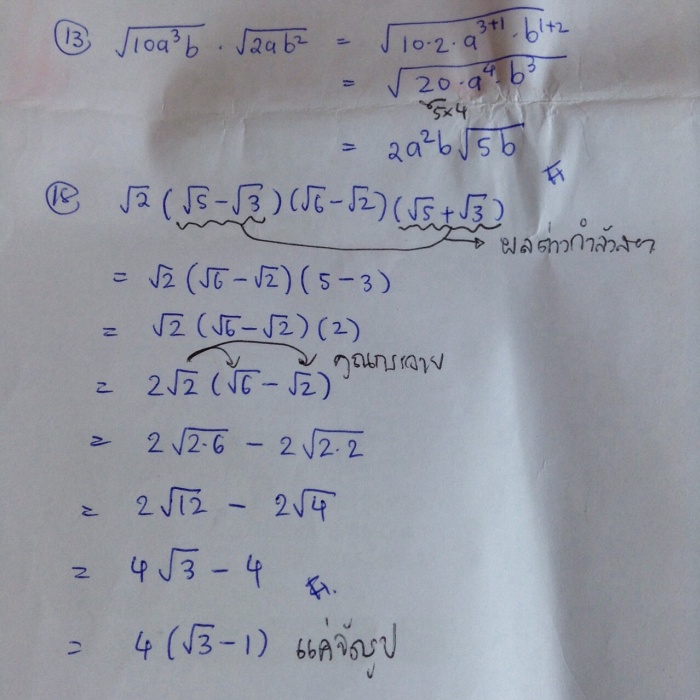 ⑬ √10a³b · √2ab² = √10·2·a³⁺¹·b¹⁺²
= √20·a⁴·b³
5×4
= 2a²b√5b
⑱ √2(√5-√3)(√6-√2)(√5+√3)
ผลต่างกำลังสอง
= √2(√6-√2)(5-3)
= √2(√6-√2)(2)
คูณกระจาย
= 2√2(√6-√2)
= 2√2·6 - 2√2·2
= 2√12 - 2√4
= 4√3 - 4
= 4(√3-1) แค่จัดรูป